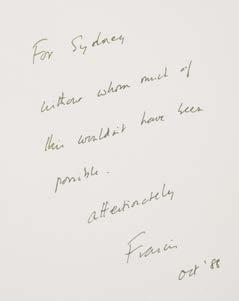 For Sydney
without whom much of
this wouldn't have been
possible.
affectionately
Francis
Oct '88